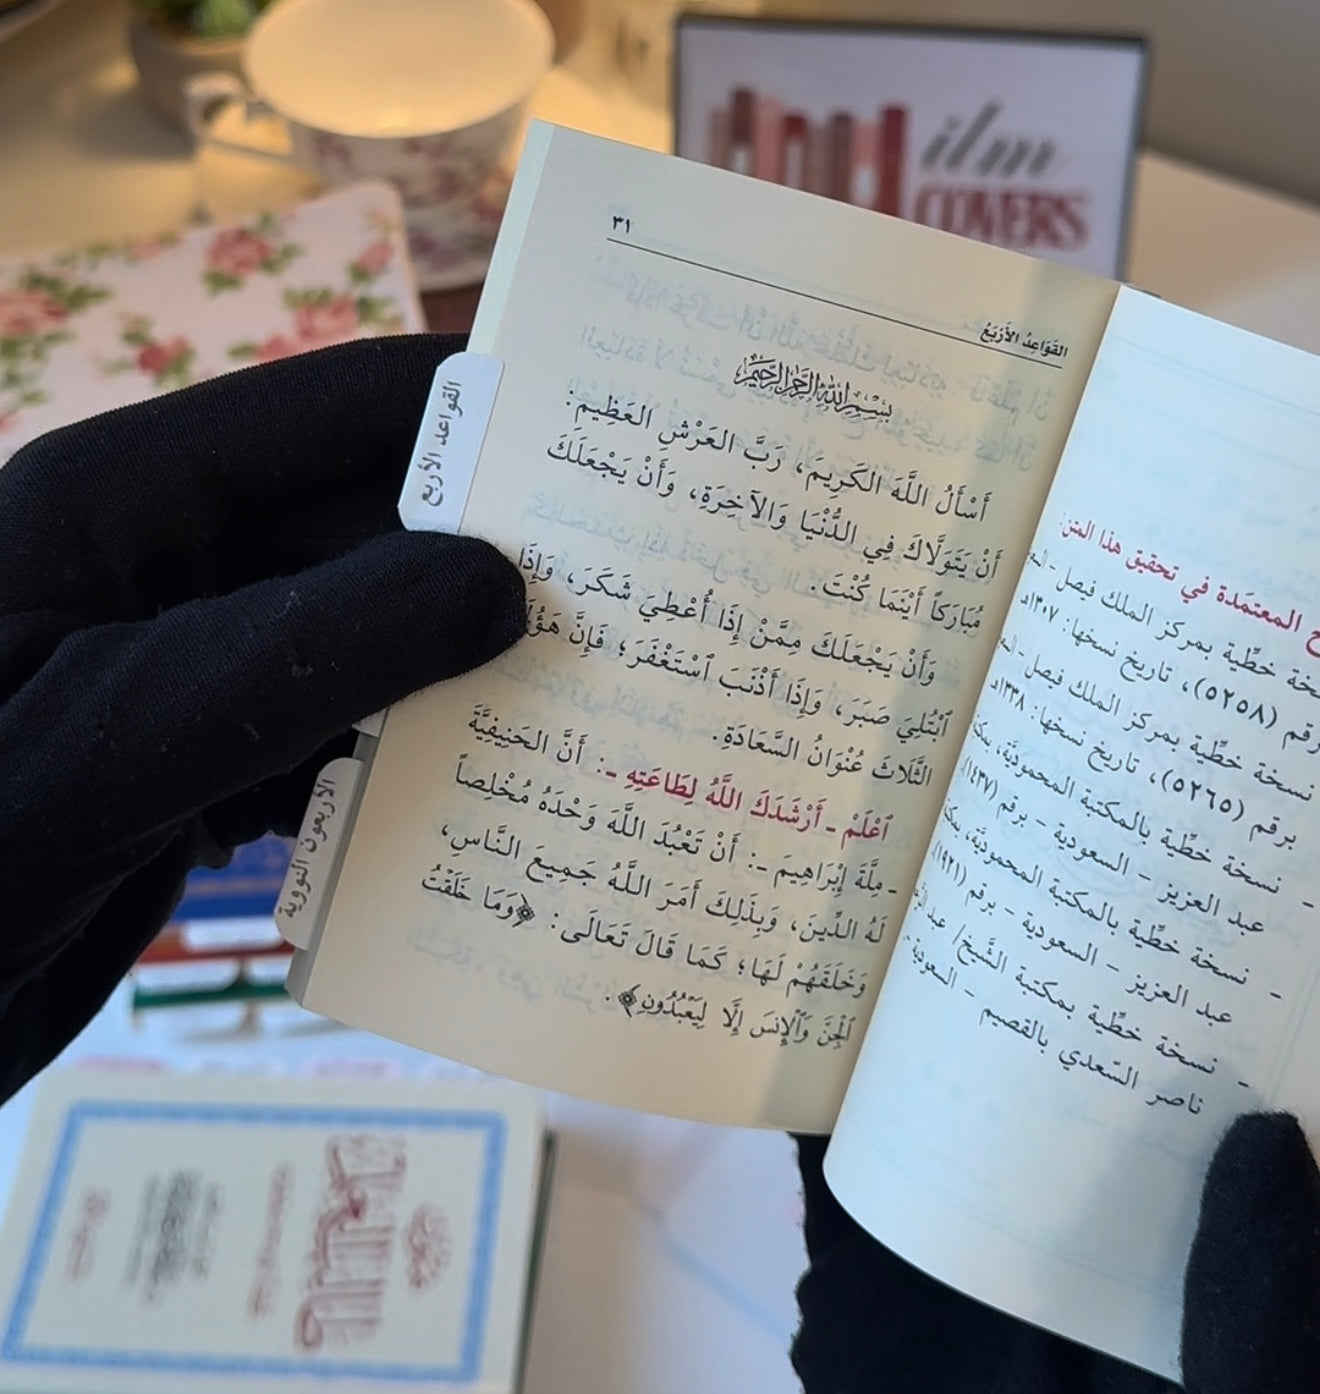 ilm
COVERS
٣١
القَوَاعِدُ الأَرْبَعُ
بِسْمِ اللَّهِ الرَّحْمَنِ الرَّحِيمِ
أَسْأَلُ اللَّهَ الكَرِيمَ، رَبَّ العَرْشِ العَظِيمِ:
أَنْ يَتَوَلَّاكَ فِي الدُّنْيَا وَالآخِرَةِ، وَأَنْ يَجْعَلَكَ
مُبَارَكاً أَيْنَمَا كُنْتَ.
وَأَنْ يَجْعَلَكَ مِمَّنْ إِذَا أُعْطِيَ شَكَرَ، وَإِذَا
ٱبْتُلِيَ صَبَرَ، وَإِذَا أَذْنَبَ ٱسْتَغْفَرَ؛ فَإِنَّ
الثَّلَاثَ عُنْوَانُ السَّعَادَةِ.
ٱعْلَمْ - أَرْشَدَكَ اللَّهُ لِطَاعَتِهِ -: أَنَّ الحَنِيفِيَّةَ
- مِلَّةَ إِبْرَاهِيمَ -: أَنْ تَعْبُدَ اللَّهَ وَحْدَهُ مُخْلِصاً
لَهُ الدِّينَ، وَبِذَلِكَ أَمَرَ اللَّهُ جَمِيعَ النَّاسِ،
وَخَلَقَهُمْ لَهَا؛ كَمَا قَالَ تَعَالَى: ﴿وَمَا خَلَقْتُ
ٱلْجِنَّ وَٱلْإِنسَ إِلَّا لِيَعْبُدُونِ﴾.
القواعد الأربع
الأربعون النووية
المعتمَدة في تحقيق هذا المتن:
خطِّية بمركز الملك فيصل -
(٥٢٥٨)، تاريخ نسخها: ١٣٠٧هـ
نسخة خطِّية بمركز الملك فيصل -
برقم (٥٢٦٥)، تاريخ نسخها: ١٣٣٨هـ
- نسخة خطِّية بالمكتبة المحموديَّة،
عبد العزيز - السعودية - برقم (١٤٣٧).
- نسخة خطِّية بالمكتبة المحموديَّة،
عبد العزيز - السعودية - برقم (١٩٢١).
- نسخة خطِّية بمكتبة الشَّيخ/
ناصر السّعدي بالقصيم - السعودية